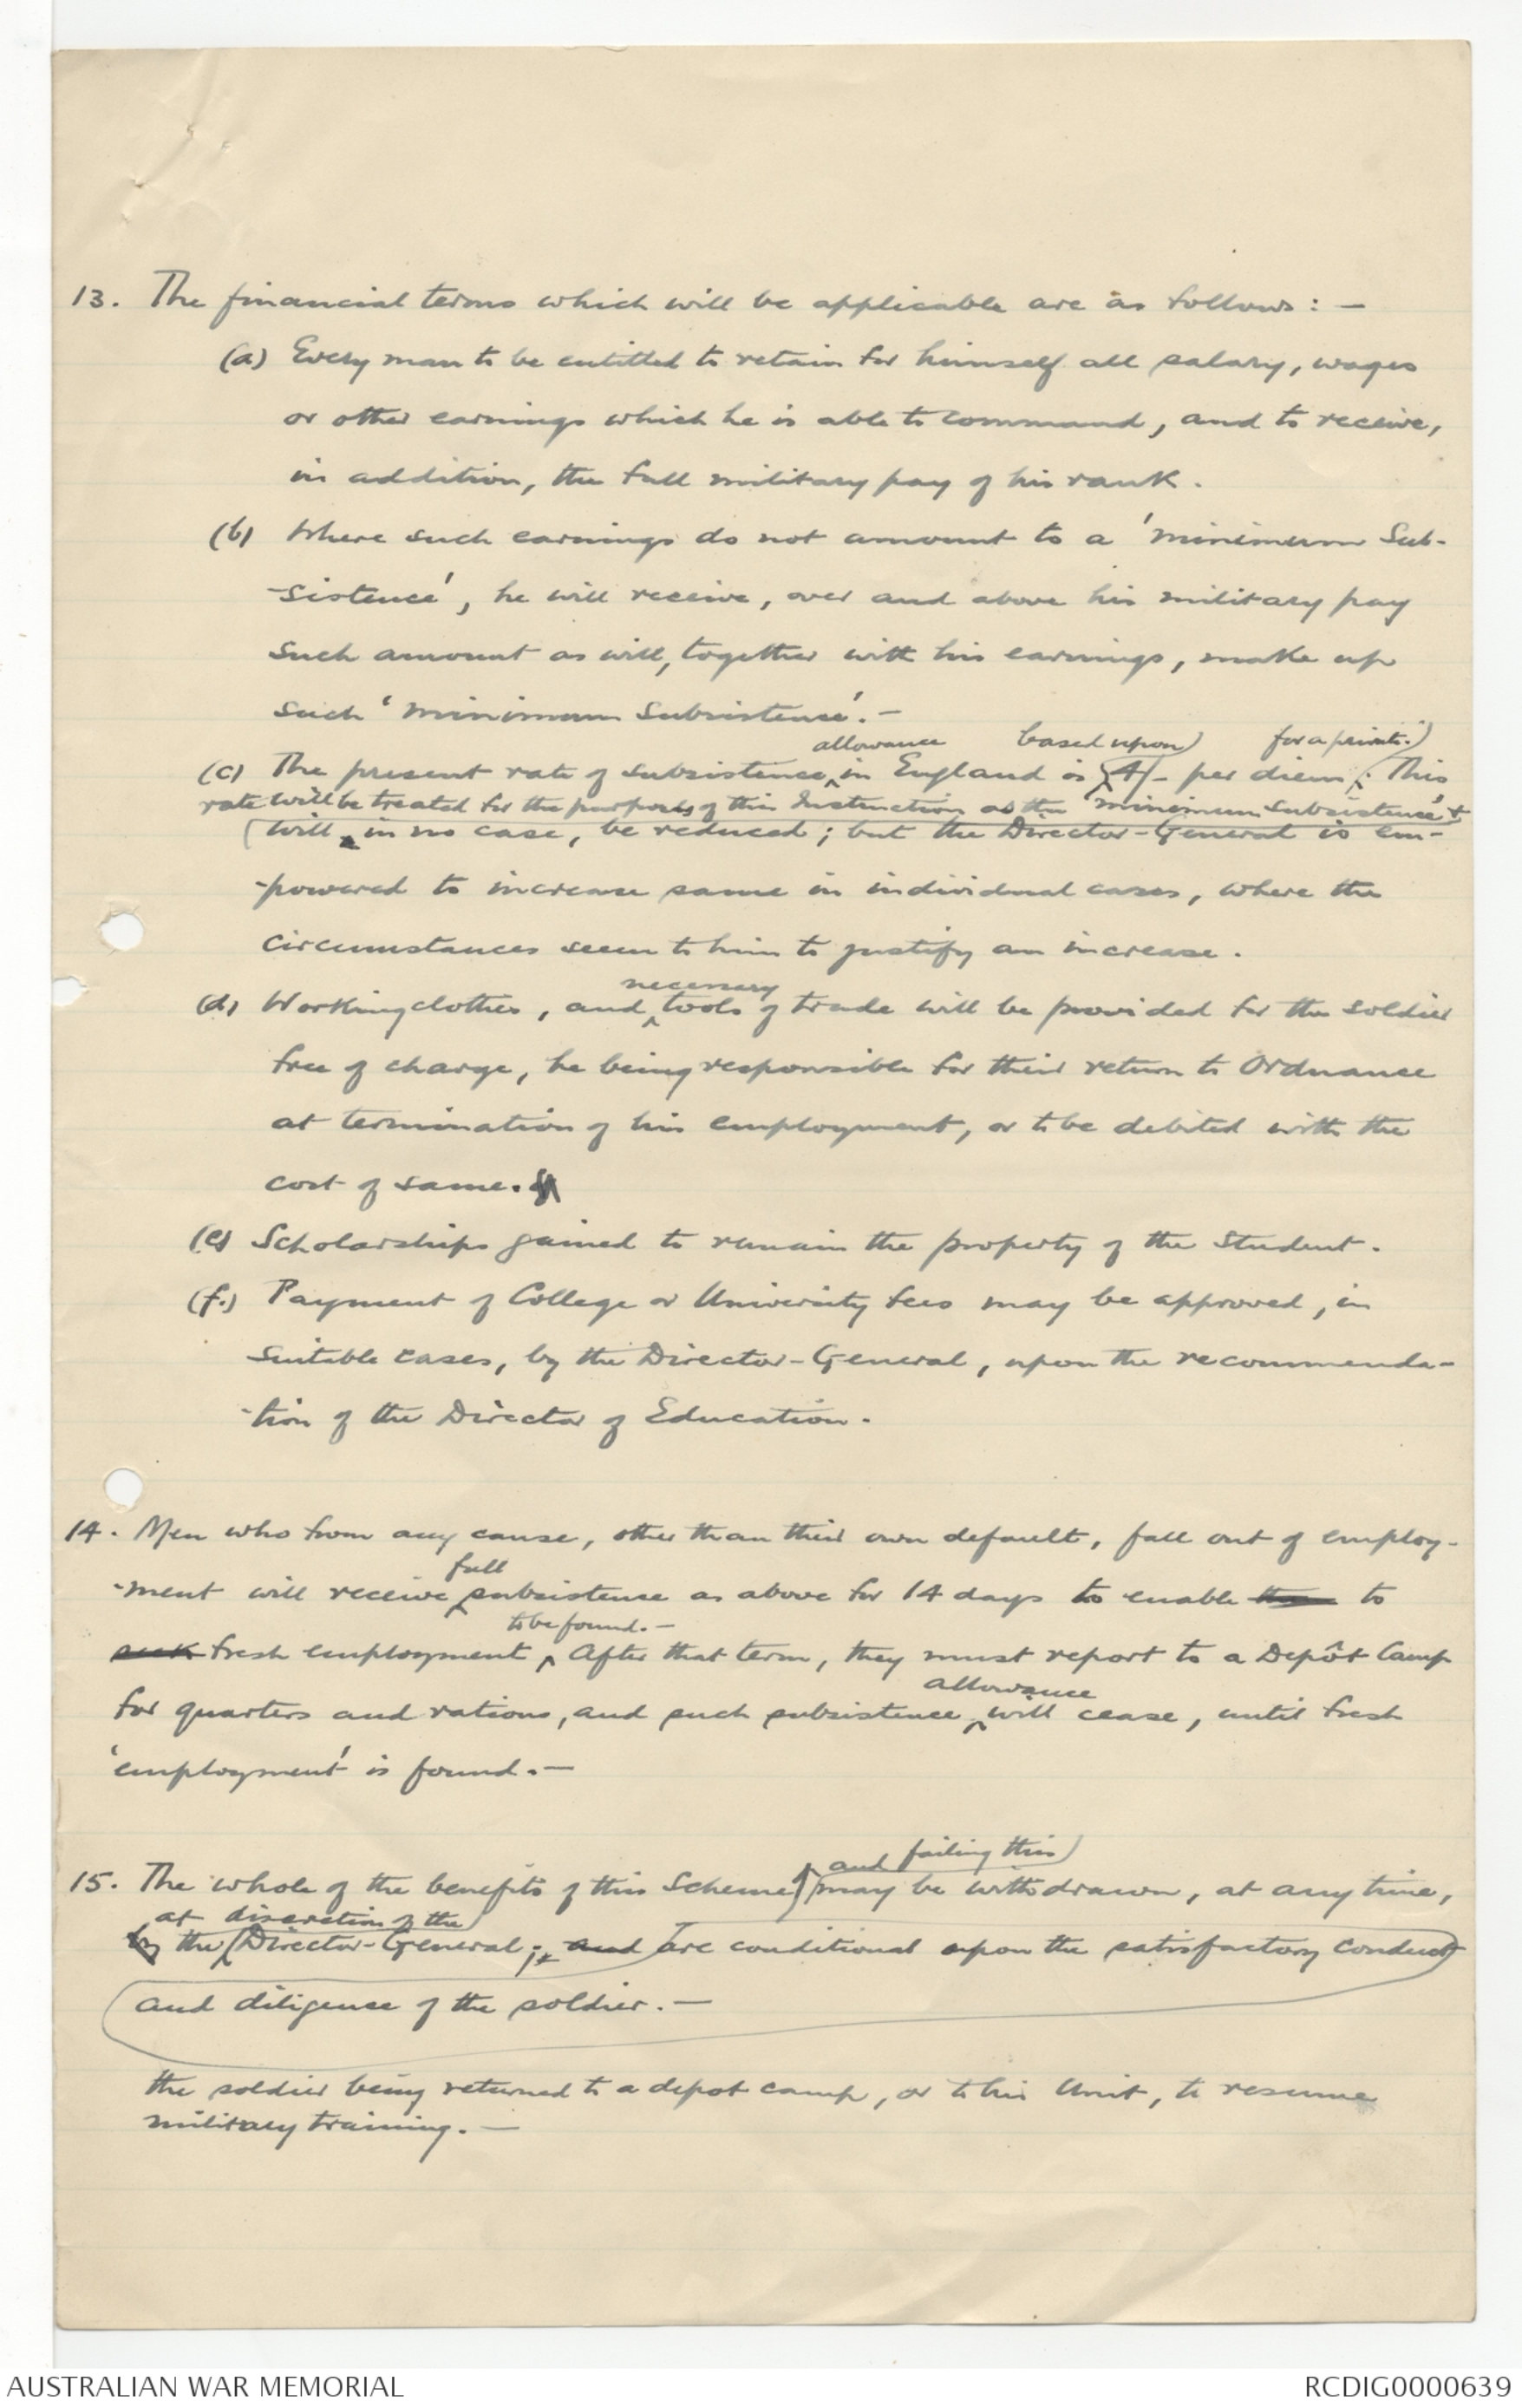 13. The financial terms which will be applicable are as follows: —
(a) Every man to be entitled to retain for himself all salary, wages
or other earnings which he is able to command, and to receive,
in addition, the full military pay of his rank.
(b) Where such earnings do not amount to a 'minimum Sub-
-sistence', he will receive, over and above his military pay
such amount as will, together with his earnings, make up
such 'minimum subsistence'. —
allowance based upon for a private.
(c) The present rate of subsistence in England is 4/- per diem. This
rate will be treated for the purposes of this Instruction as the 'minimum subsistence' &
will in no case, be reduced; but the Director-General is em-
-powered to increase same in individual cases, where the
circumstances seem to him to justify an increase.
necessary
(d) Working clothes, and tools of trade will be provided for the soldier
free of charge, he being responsible for their return to Ordnance
at termination of his employment, or to be debited with the
cost of same.
(e) Scholarships gained to remain the property of the student.
(f.) Payment of College or University fees may be approved, in
suitable cases, by the Director-General, upon the recommenda-
-tion of the Director of Education.
14. Men who from any cause, other than their own default, fall out of employ-
full
-ment will receive subsistence as above for 14 days to enable to
to be found. —
seek fresh employment After that term, they must report to a Depôt Camp
allowance
for quarters and rations, and such subsistence will cease, until fresh
'employment' is found. —
and failing this
15. The whole of the benefits of this Scheme may be withdrawn, at any time,
at discretion of the
by the Director-General; & and are conditional upon the satisfactory conduct
and diligence of the soldier. —
the soldier being returned to a depot camp, or to his Unit, to resume
military training. —
AUSTRALIAN WAR MEMORIAL
RCDIG0000639